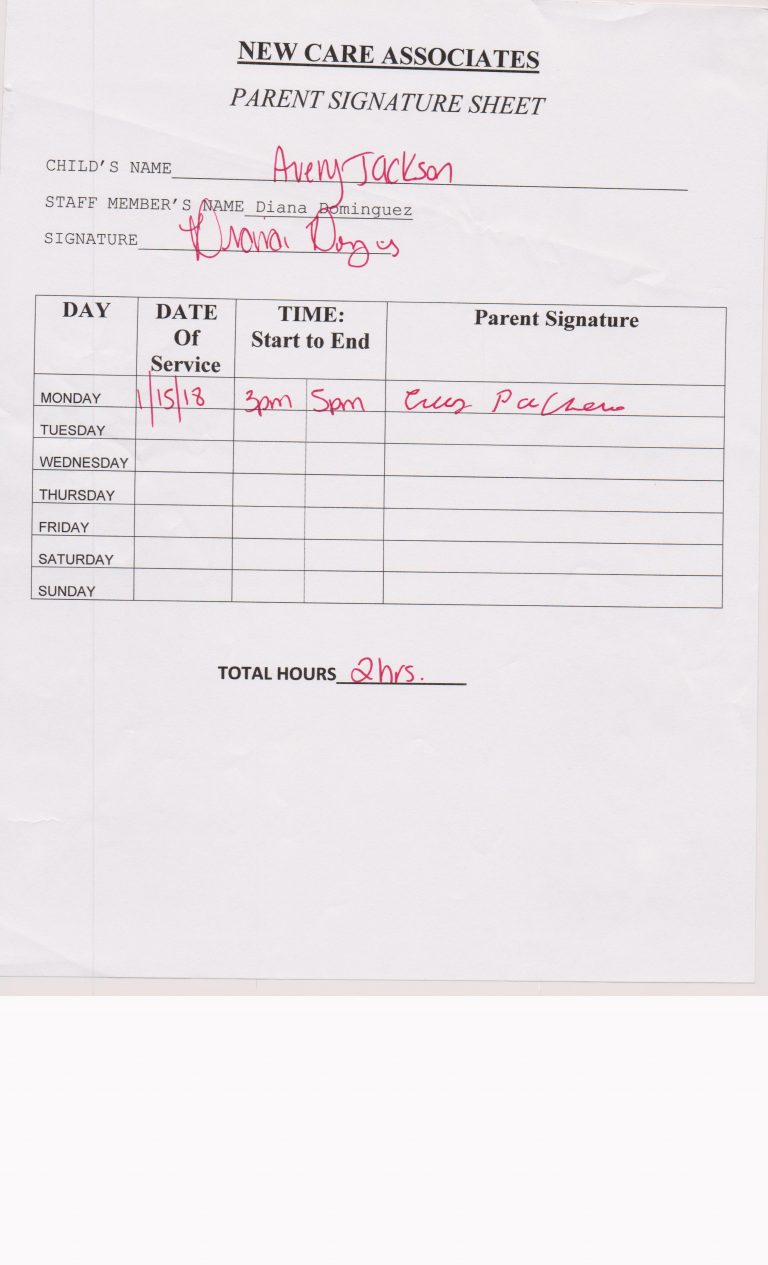 NEW CARE ASSOCIATES
PARENT SIGNATURE SHEET
CHILD'S NAME Avery Jackson
STAFF MEMBER'S NAME Diana Dominguez
SIGNATURE Diana
DAY DATE Of Service TIME: Start to End Parent Signature
MONDAY 1/15/18 3pm 5pm
TUESDAY
WEDNESDAY
THURSDAY
FRIDAY
SATURDAY
SUNDAY
TOTAL HOURS 2hrs.